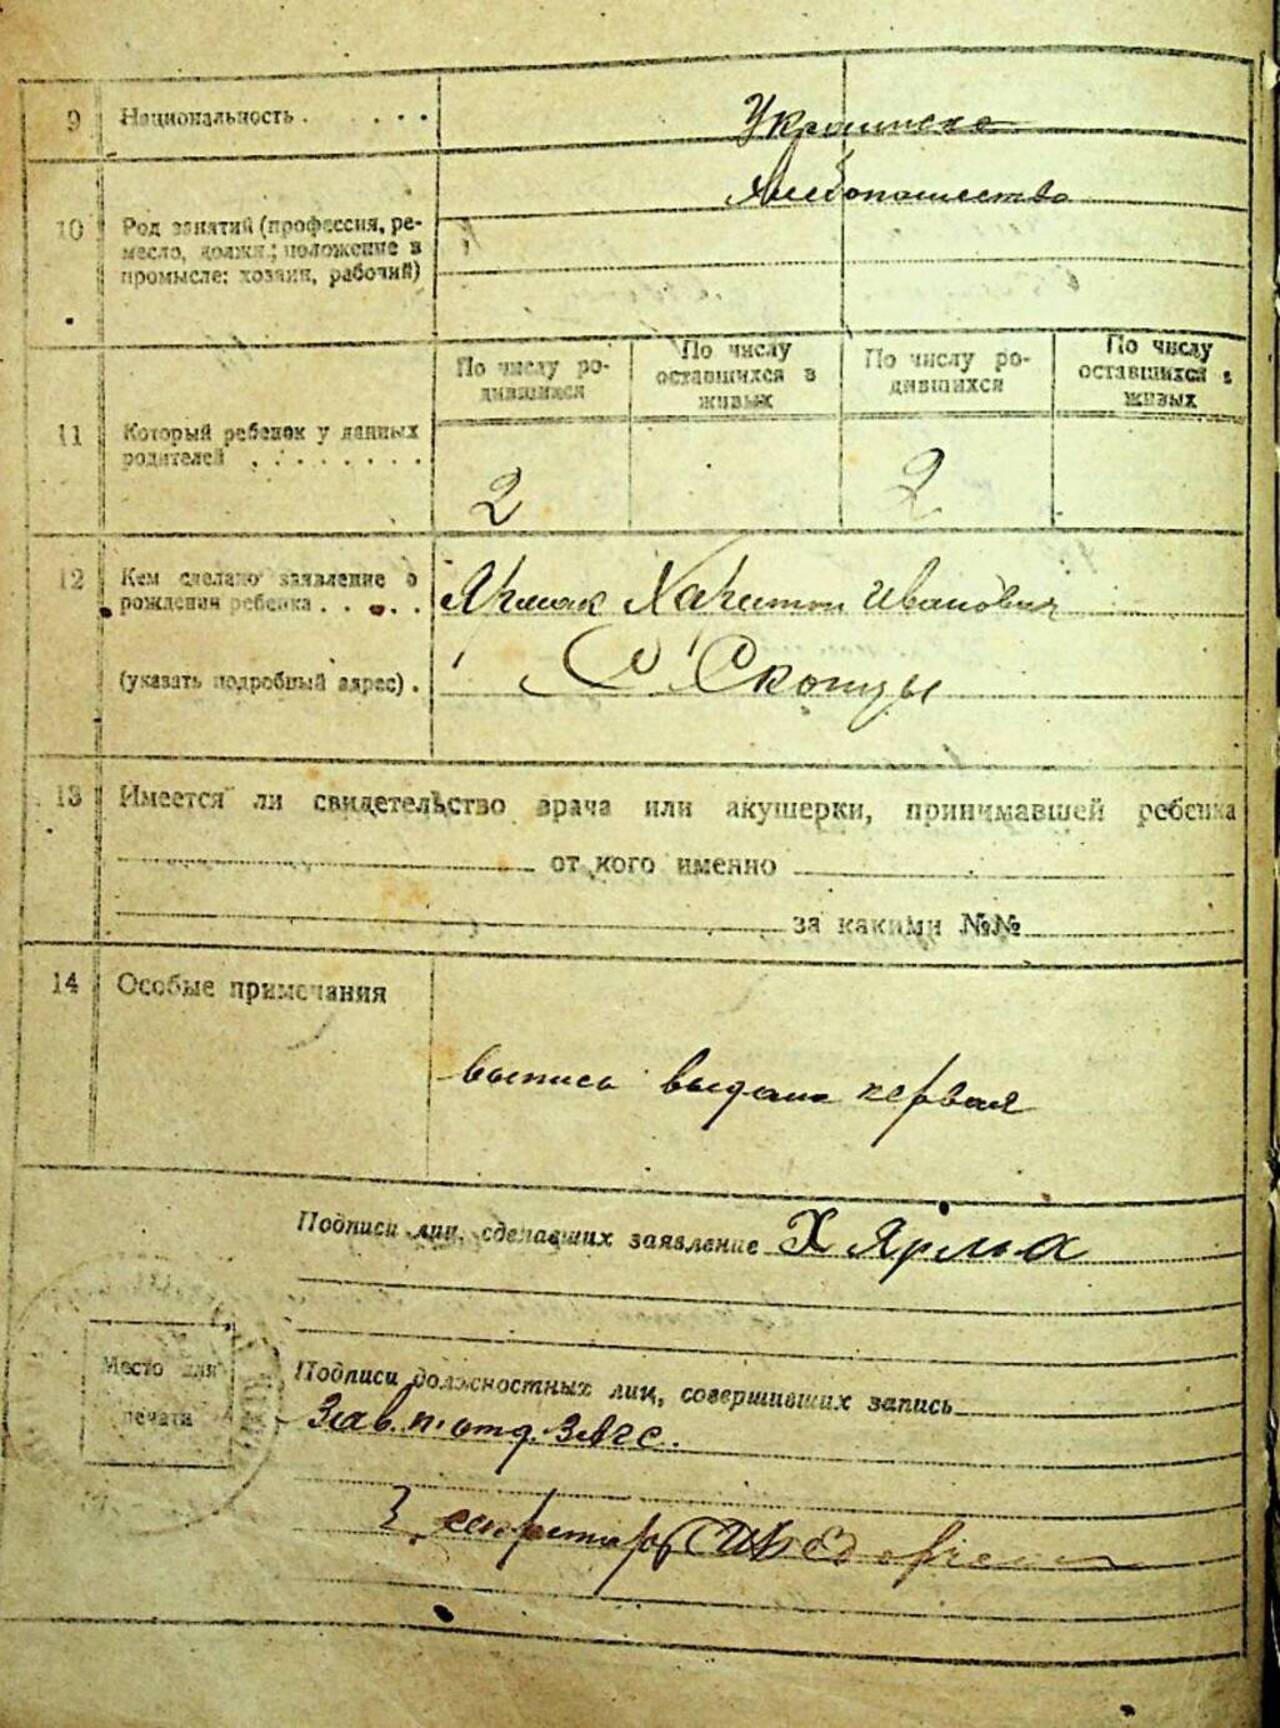 9 Национальность . . . . . Украинска
Хлебопашество
10 Род занятий (профессия, ре-
месло, должн.; положение в
промысле: хозяин, рабочий)
По числу ро-
дившихся
По числу
оставшихся в
живых
По числу ро-
дившихся
По числу
оставшихся в
живых
11 Который ребенок у данных
родителей . . . . . . . .
2 2
12 Кем сделано заявление о
рождении ребенка . . . . . Ярмак Харитон Иванович
(указать подробный адрес) . С Скопцы
13 Имеется ли свидетельство врача или акушерки, принимавшей ребенка
от кого именно
за какими №№
14 Особые примечания
выпись выдана первая
Подписи лиц, сделавших заявление Х Ярма
Место для
печати
Подписи должностных лиц, совершивших запись
Зав. п. отд. Загс.
секретарь